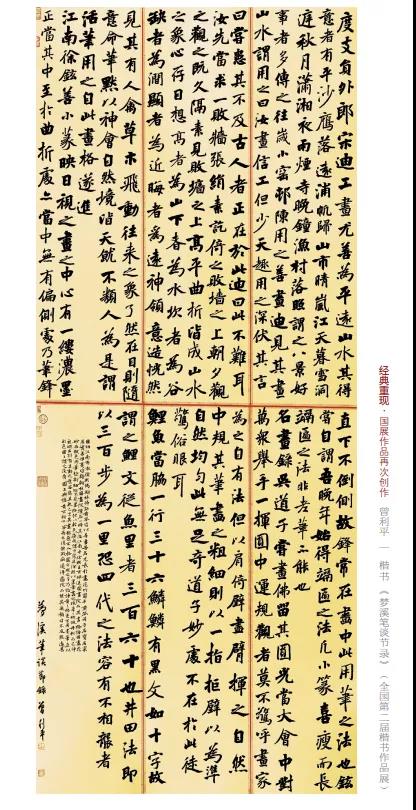 度支員外郎宋迪工畫尤善為平遠山水其得
意者有平沙雁落遠浦帆歸山市晴嵐江天暮雪洞
庭秋月瀟湘夜雨煙寺晚鐘漁村落照謂之八景好
事者多傳之往歲小窑邨陳用之善畫迪見其畫
山水謂用之曰汝畫信工但少天趣用之深伏其言
曰嘗患其不及古人者正在於此迪曰此不難耳
汝先當求一敗墻張絹素訖倚之敗墻之上朝夕觀
之觀之既久隔素見敗墻之上高平曲折皆成山水
之象心存目想高者為山下者為水坎者為谷
缺者為澗顯者為近晦者為遠神領意造恍然
見其有人禽草木飛動往來之象了然在目則隨
意命筆默以神會自然境皆天就不類人為是謂
活筆用之自此畫格遂進
江南徐鉉善小篆映日視之畫之中心有一縷濃墨
正當其中至於曲折處亦當中無有偏側處乃筆鋒
直下不倒側故鋒常在畫中此用筆之法也鉉
嘗自謂吾晚年始得竵匾之法凡小篆喜瘦而長
竵匾之法非老筆不能也
名畫錄吳道子嘗畫佛留其圓光當大會中對
萬眾舉手一揮圓中運規觀者莫不驚呼畫家
為之自有法但以肩倚壁盡臂揮之自然
中規其筆畫之粗細則以一指拒壁以為準
自然均勻此無足奇道子妙處不在於此徒
驚俗眼耳
鯉魚當脇一行三十六鱗鱗有黑文如十字故
謂之鯉文從魚里者三百六十也井田法即
以三百步為一里恐四代之法容有不相襲者
夢溪筆談節錄曾利平
经典重现·国展作品再次创作 曾利平 — 楷书《梦溪笔谈节录》(全国第二届楷书作品展)